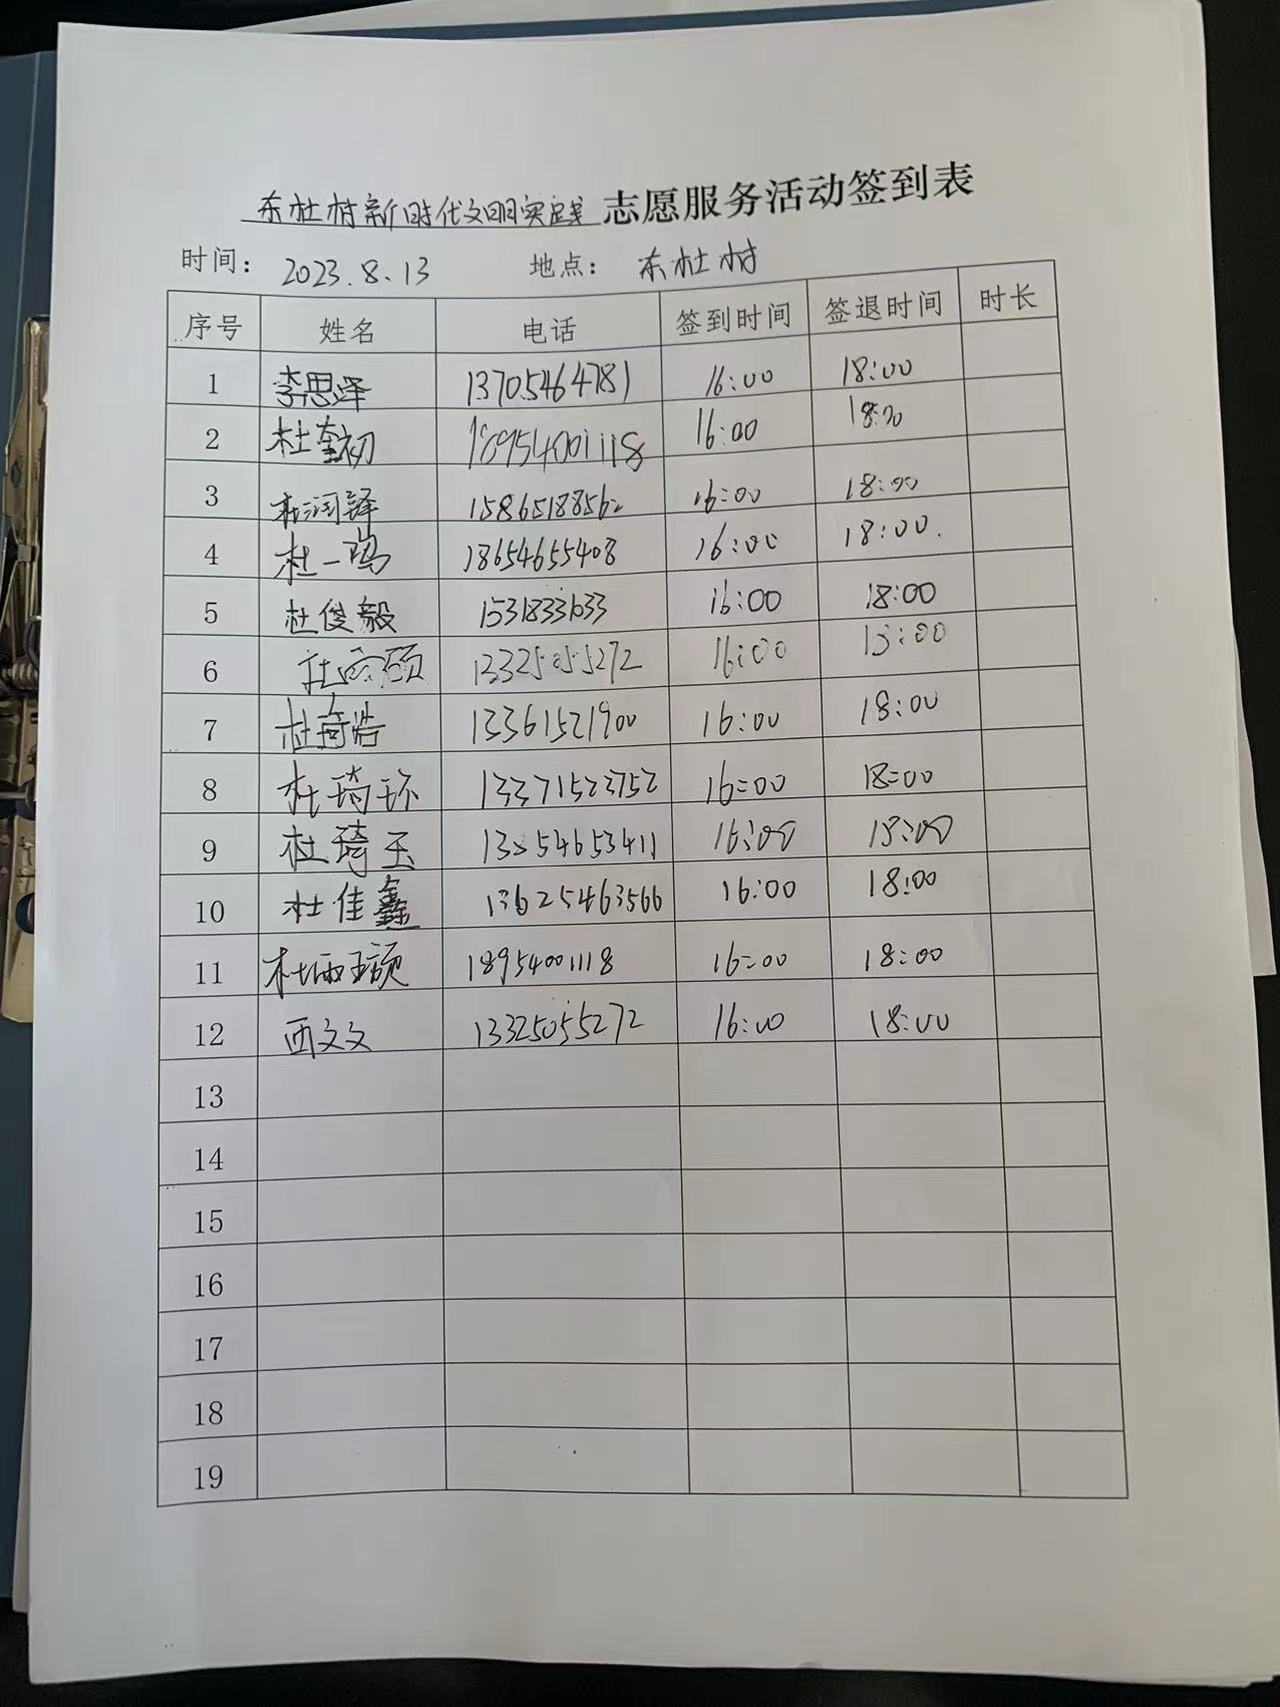 东杜村新时代文明实践 志愿服务活动签到表
时间： 2023.8.13 地点： 东杜村
序号 姓名 电话 签到时间 签退时间 时长
1 李思泽 13705464781 16:00 18:00
2 杜奎初 18954001118 16:00 18:00
3 杜润铎 15865188562 16:00 18:00
4 杜一鸣 18654655408 16:00 18:00.
5 杜俊毅 16:00 18:00
6 13325055272 16:00 18:00
7 杜奇浩 13361521900 16:00 18:00
8 杜琦环 13371523752 16:00 18:00
9 杜琦玉 16:00 18:00
10 杜佳鑫 13625463566 16:00 18:00
11 18954001118 16:00 18:00
12 西文文 13325055272 16:00 18:00
13
14
15
16
17
18
19